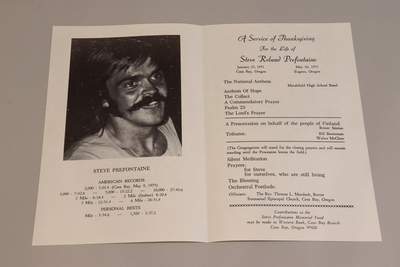 STEVE PREFONTAINE
AMERICAN RECORDS
2,000 - 5:01.4 (Coos Bay, May 9, 1975)
3,000 - 7:42.6 5,000 - 13:22.2 10,000 - 27:43.6
2 Mile - 8:18.4 2 Mile (Indoor) 8:20.4
3 Mile - 12:51.4 6 Mile - 26:51.4
PERSONAL BESTS
Mile - 3:54.6 1,500 - 3:37.2
A Service of Thanksgiving
For the Life of
Steve Roland Prefontaine
January 25, 1951 May 30, 1975
Coos Bay, Oregon Eugene, Oregon
The National Anthem
Marshfield High School Band
Anthem Of Hope
The Collect
A Commendatory Prayer
Psalm 23
The Lord's Prayer
A Presentation on behalf of the people of Finland
Tributes:
Bill Bowerman
Walter McClure
(The Congregation will stand for the closing prayers and will remain
standing until the Procession leaves the field.)
Silent Meditation
Prayers:
for Steve
for ourselves, who are still living
The Blessing
Orchestral Postlude
Officiant: The Rev. Thomas L. Murdock, Rector
Emmanuel Episcopal Church, Coos Bay, Oregon
Contributions to the
Steve Prefontaine Memorial Fund
may be made to Western Bank, Coos Bay Branch
Coos Bay, Oregon 97420